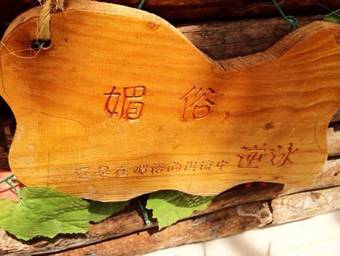 媚俗,
还是在媚俗的洪流中逆泳